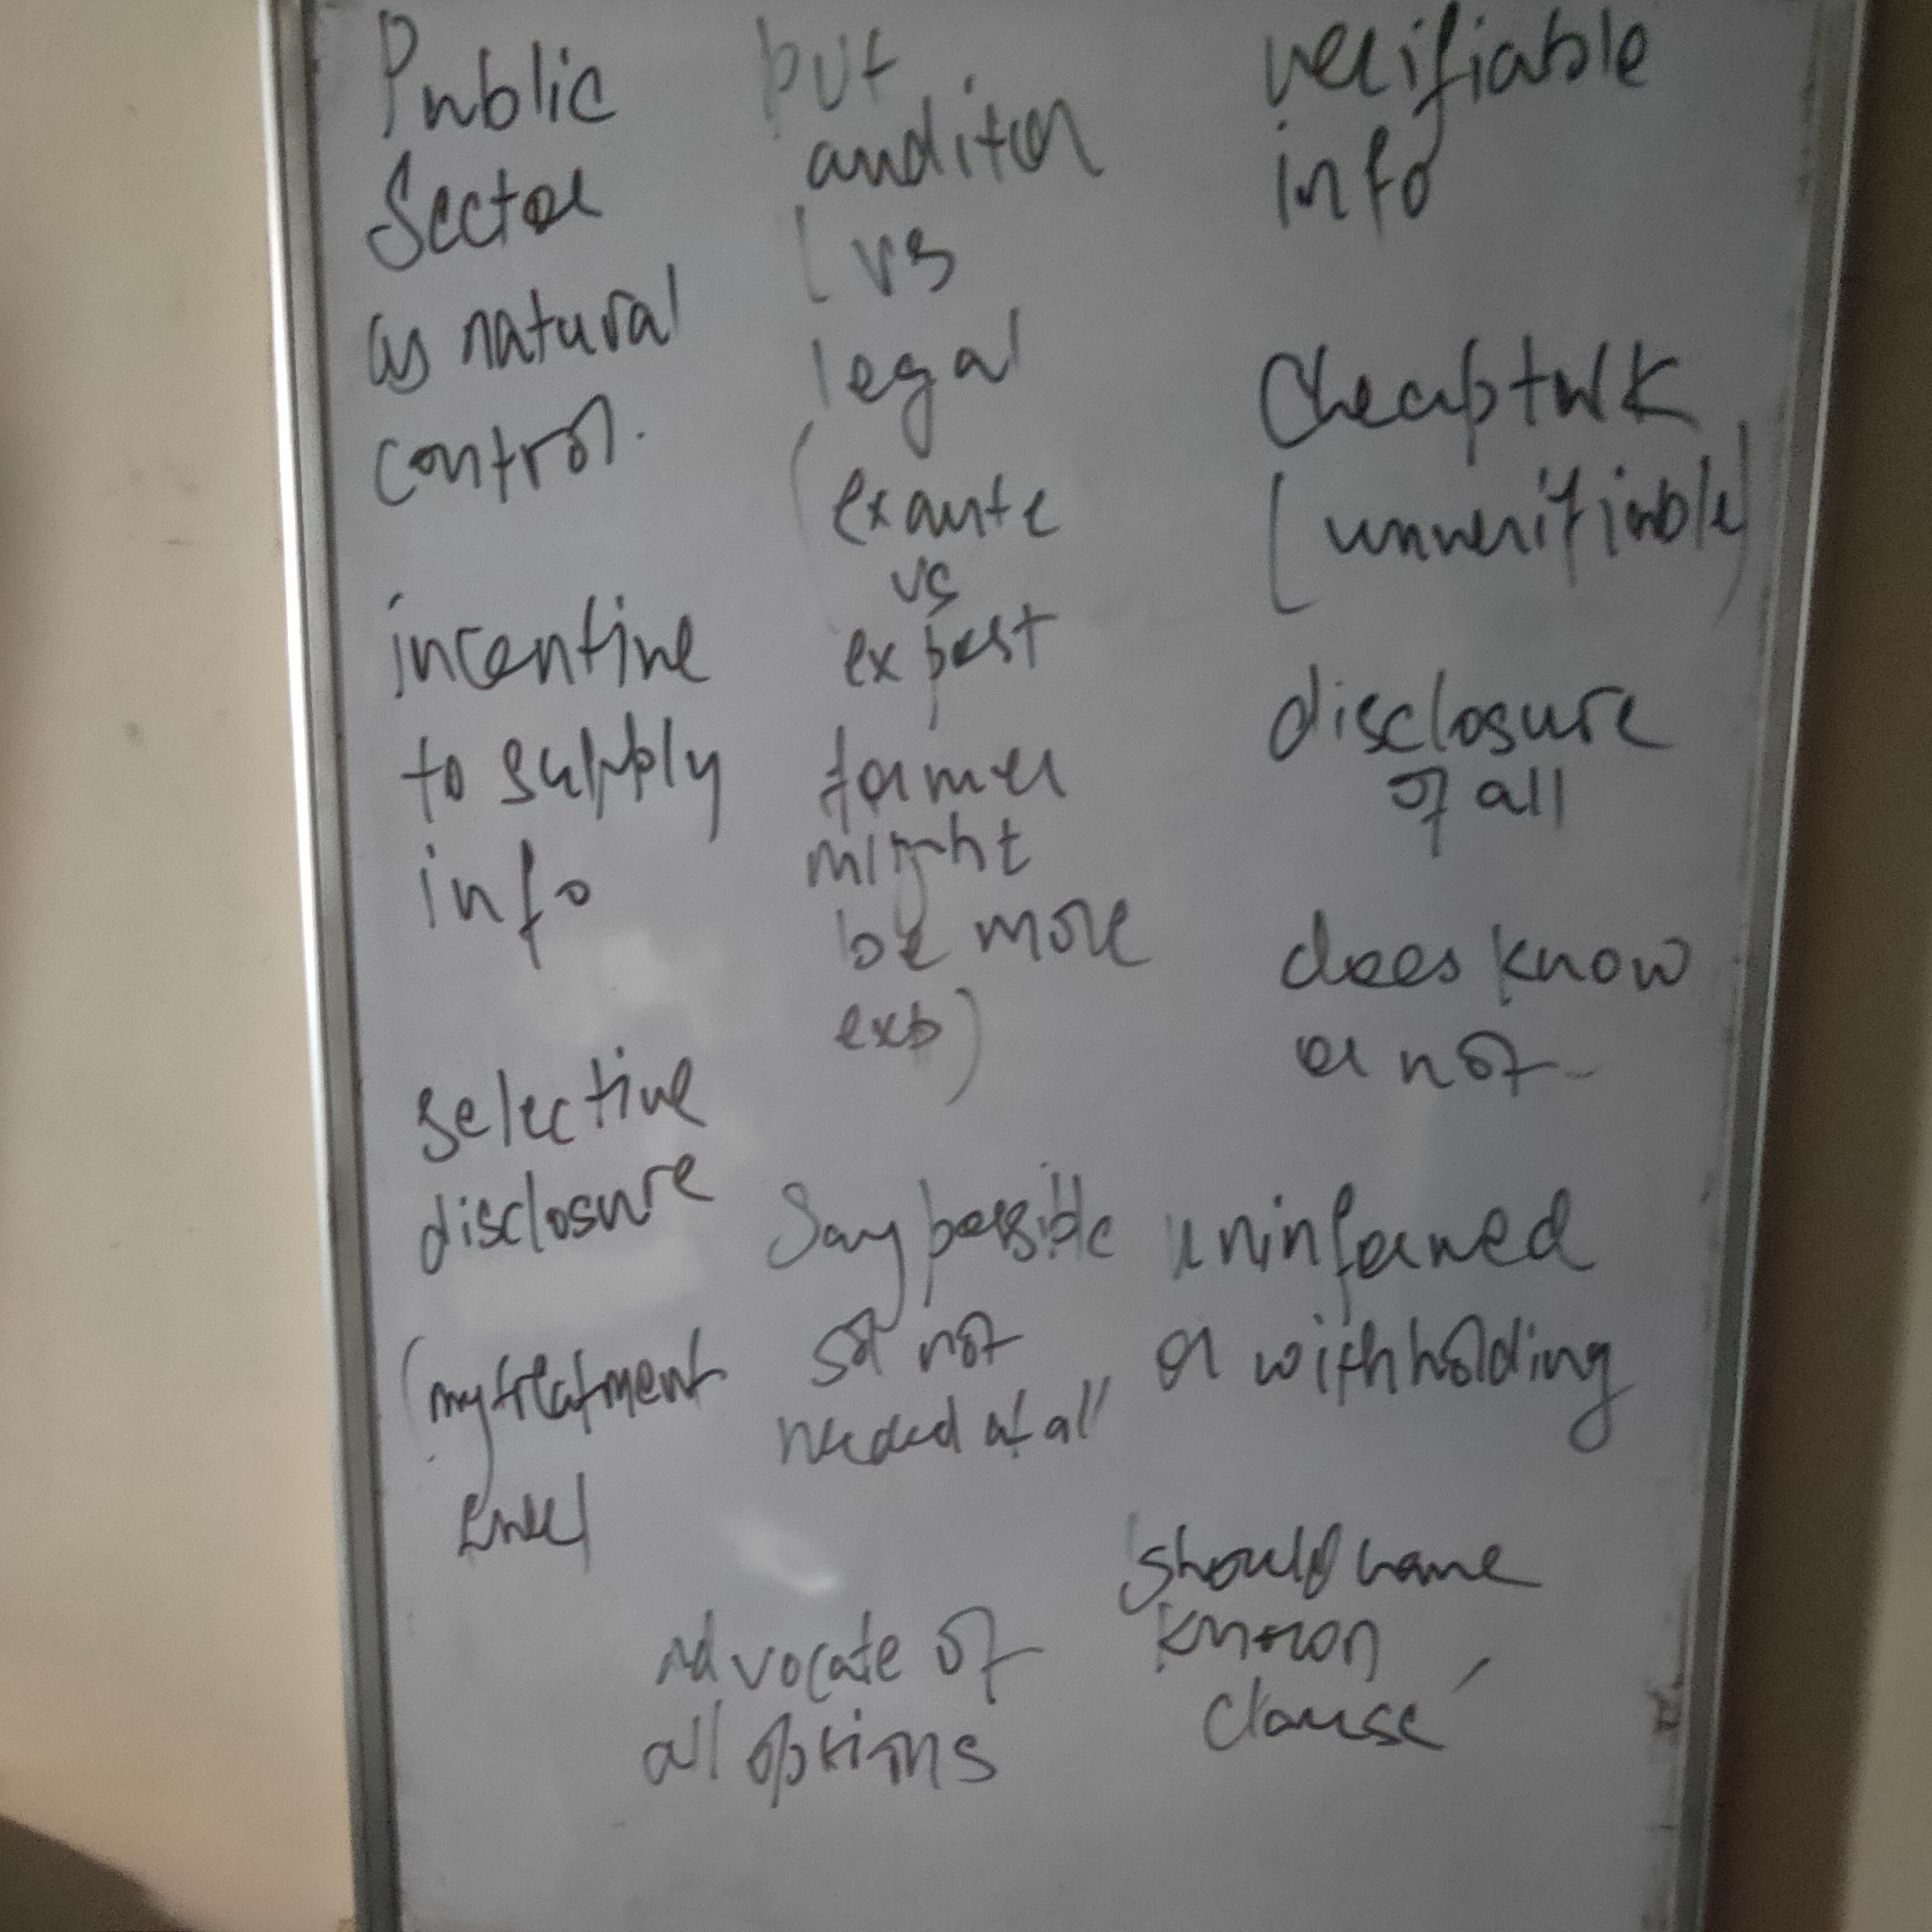 Public
Sector
as natural
control.
incentive
to supply
info
selective
disclosure
(my treatment
but
auditor
(vs
legal
(ex ante
vs
ex post
former
might
be more
exp)
Say possible
not
needed at all
Advocate of
all options
verifiable
info
Cheap talk
(unverifiable)
disclosure
of all
does know
or not-
uninformed
or withholding
should have
known
clause